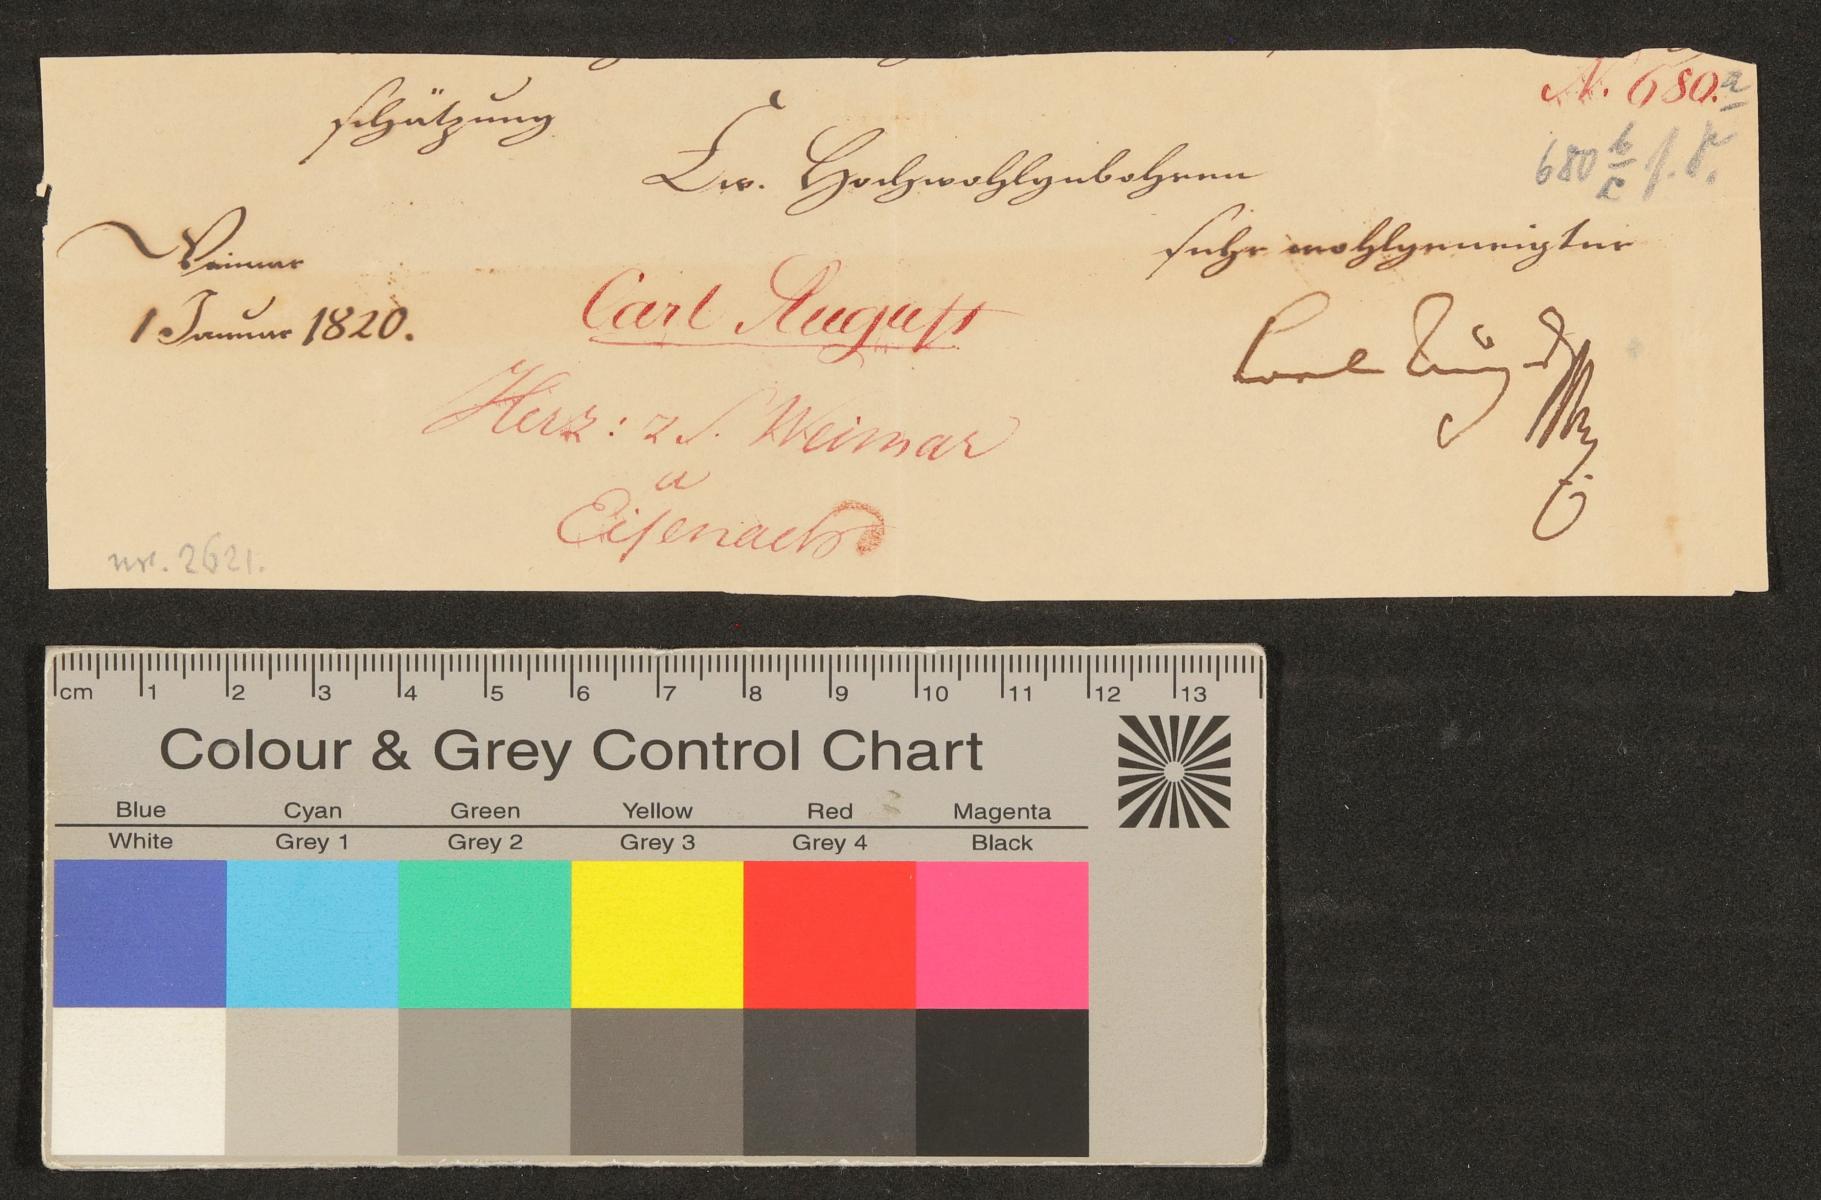 N. 680. a
schätzung
680 b/c f. F.
Ew. Hochwohlgebohren
sehr wohlgeneigter
Weimar
1 Januar 1820.
Carl August
Carl August
Herz: z S. Weimar
u
Eisenach
nr. 2621.
cm 1 2 3 4 5 6 7 8 9 10 11 12 13
Colour & Grey Control Chart
Blue Cyan Green Yellow Red Magenta
White Grey 1 Grey 2 Grey 3 Grey 4 Black